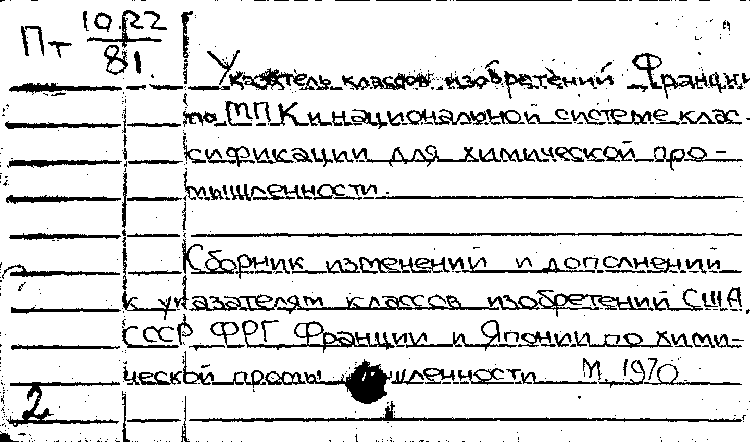 Пт 1022
81.
Указатель классов изобретений Франции
по МПК и национальной системе клас-
сификации для химической про-
мышленности.
Сборник изменений и дополнений
к указателям классов изобретений США,
СССР ФРГ Франции и Японии по хими-
ческой промышленности М, 1970
2